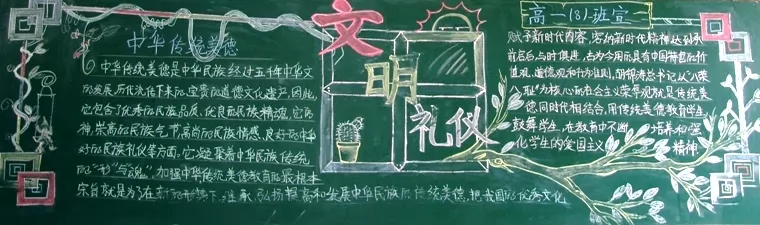 中华传统美德
中华传统美德是中华民族经过五千年中华文
的发展,历代流传下来的宝贵的道德文化遗产,因此,
它包含了优秀的民族品质、优良的民族精神,它的
神,崇高的民族气节,高尚的民族情感,良好的中华
好的民族礼仪等方面。它凝聚着中华民族传统
的“形”与“魂”,加强中华传统美德教育的最根本
宗旨就是为了在新的形势下,继承,弘扬提高和发展中华民族的传统美德,把我国的优秀文化
文明礼仪
高一(8)班宣
赋予新时代内容,容纳新时代精神达到承
前启后,与时俱进,古为今用而具有中国特色的价
值观,道德观和行为准则,胡锦涛总书记以“八荣
八耻”为核心的社会主义荣辱观就是传统美
德,同时代相结合,用传统美德教育学生,
鼓舞学生,在教育中不断 培养和强
化学生的爱国主义 精神